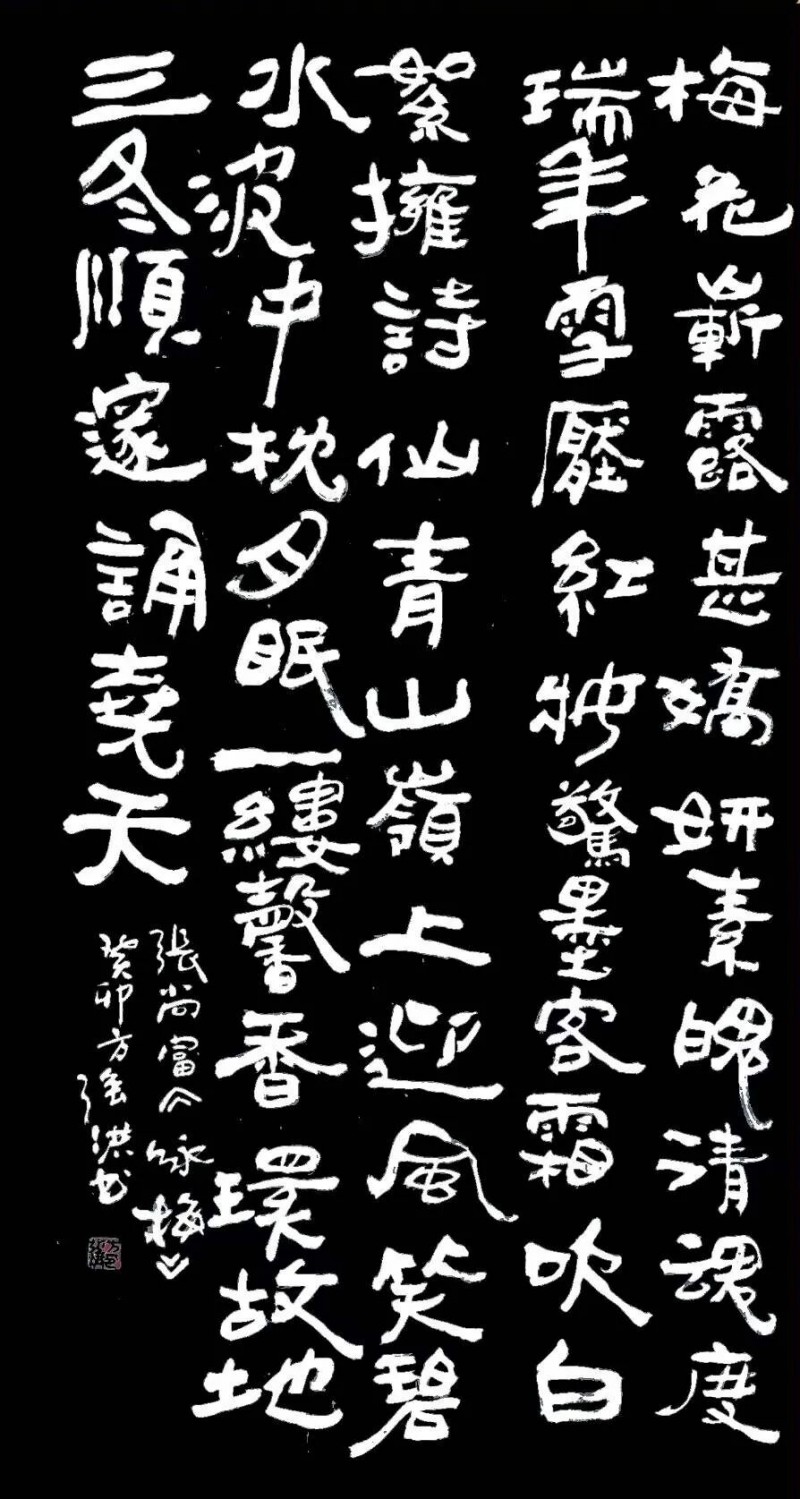 梅花嶄露甚嬌妍素魄清魂度
瑞年雪壓紅妝驚墨客霜吹白
絮擁詩仙青山嶺上迎風笑碧
水波中枕月眠一縷馨香環故地
三冬順邃誦堯天
張尚富《詠梅》
癸卯方強洪書